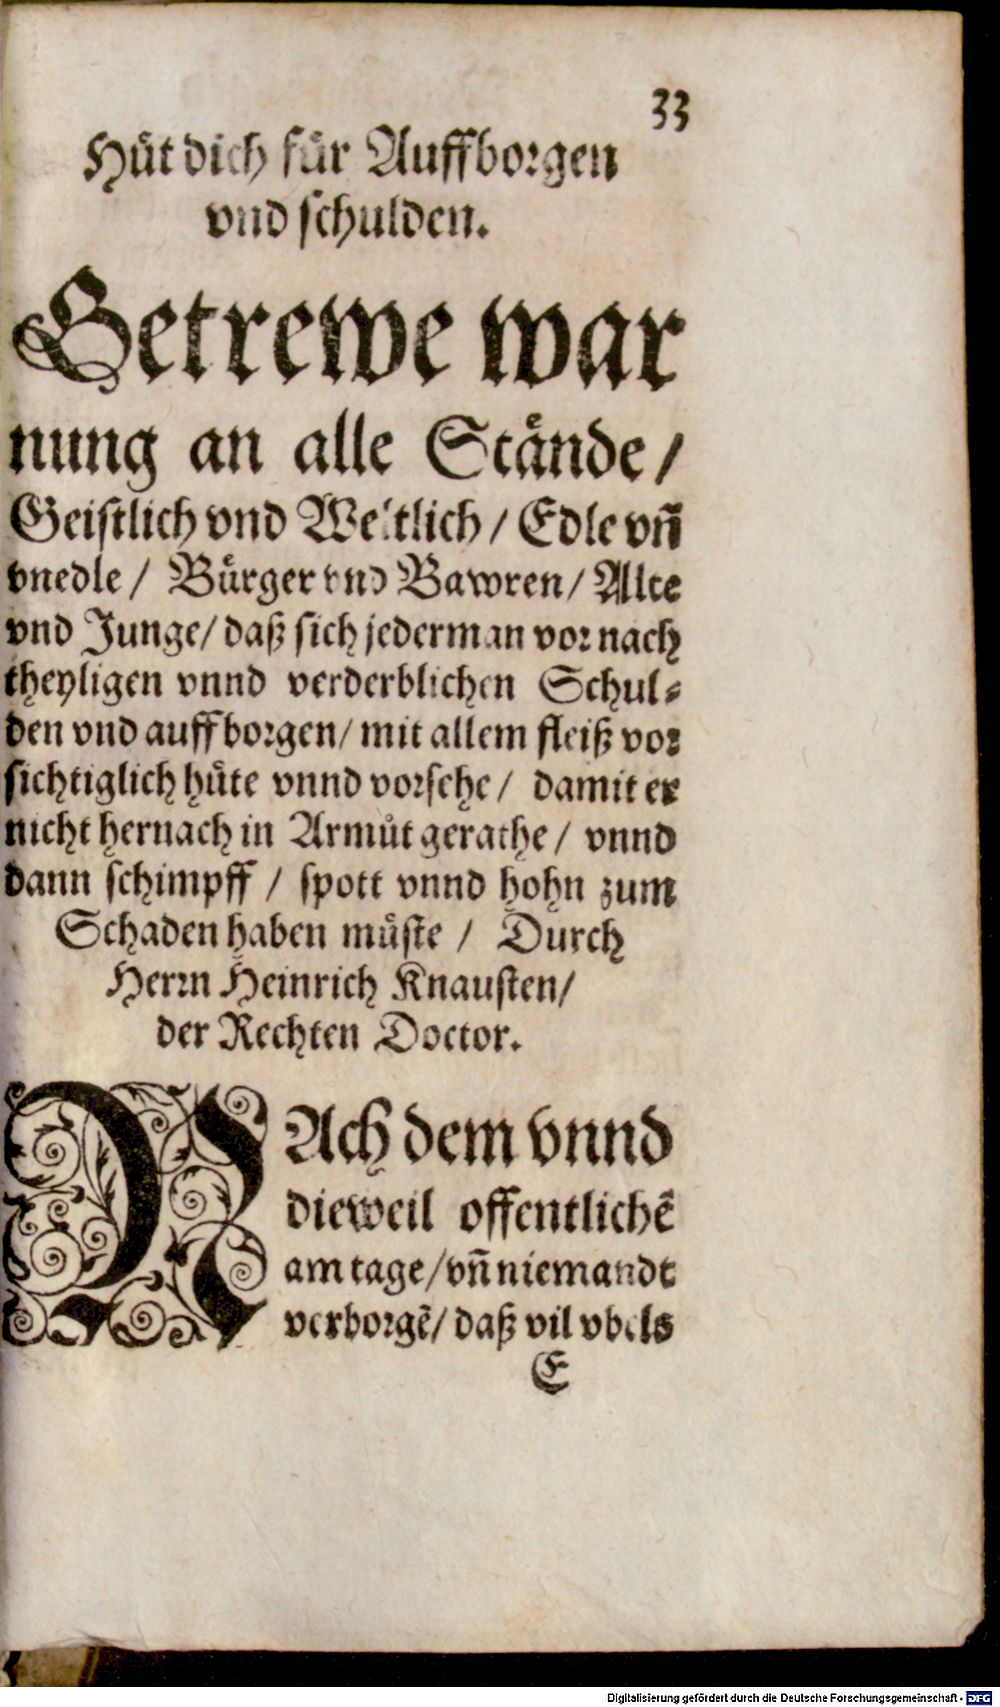 33
Huͤt dich fuͤr Auffborgen
vnd schulden.
Getrewe war
nung an alle Staͤnde /
Geistlich vnd Weltlich / Edle vn̄
vnedle / Buͤrger vnd Bawren / Alte
vnd Junge / daß sich jederman vor nach
theyligen vnnd verderblichen Schul-
den vnd auffborgen / mit allem fleiß vor
sichtiglich huͤte vnnd vorsehe / damit er
nicht hernach in Armuͦt gerathe / vnnd
dann schimpff / spott vnnd hohn zum
Schaden haben muͤste / Durch
Herrn Heinrich Knausten /
der Rechten Doctor.
NAch dem vnnd
dieweil offentlichē
am tage / vn̄ niemandt
verborgē / daß vil vbels
E
Digitalisierung gefördert durch die Deutsche Forschungsgemeinschaft - DFG